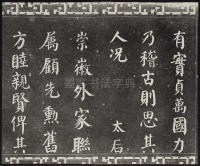 有實貞萬國力
乃稽古則思其
人况 太后
崇徽外家聯
属顧先勲舊
方睦親賢俾其